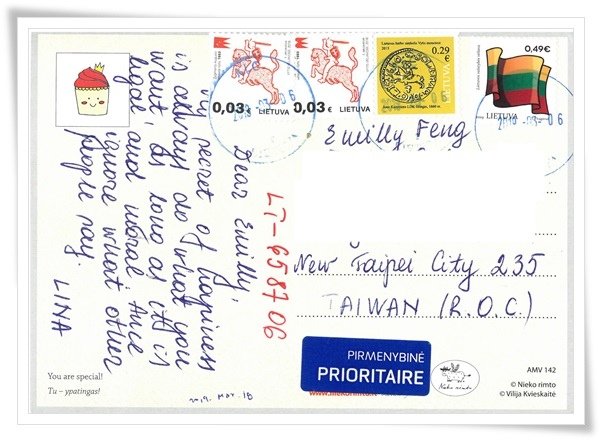 0,03 €
LIETUVA
0,03 €
LIETUVA
2015
0.29
€
0,49€
LIETUVA
Dear Emilly,
My secret of happiness
is always do what you
want, as long as it is
legal and moral.
ignore what other
people say.
LINA
LT-658706
Emilly Feng
New Taipei City 235
TAIWAN (R.O.C.)
PIRMENYBINĖ
PRIORITAIRE
Nieko rimto
AMV 142
© Nieko rimto
© Vilija Kvieskaitė
You are special!
Tu – ypatingas!